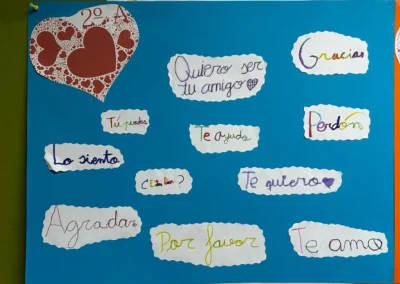 2º A
Quiero ser
tu amigo
Gracias
Tú puedes
Te ayudo
Perdón
Lo siento
Te quiero
Agradar
Por favor
Te amo